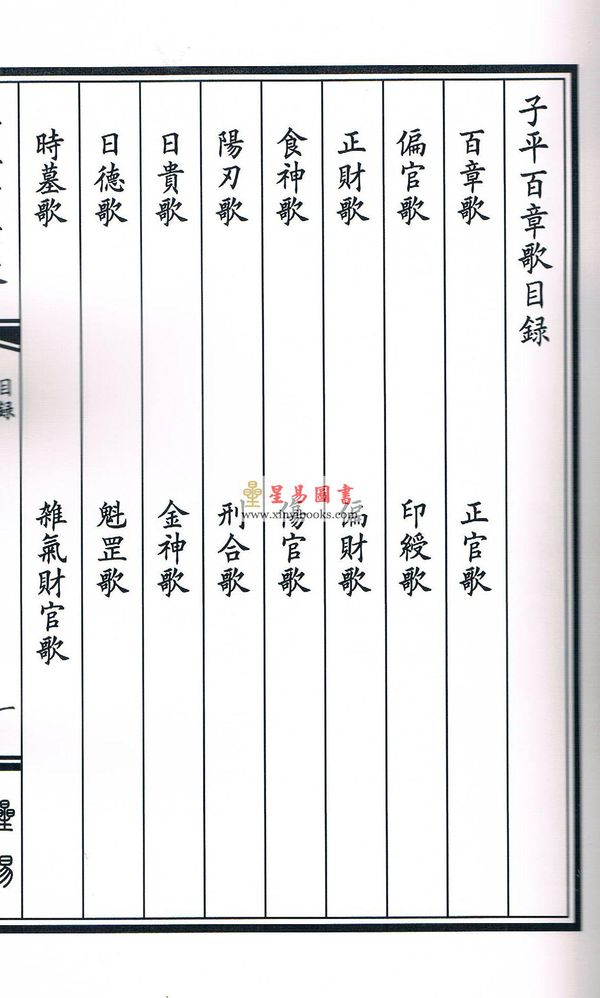 子平百章歌目録
百章歌
正官歌
偏官歌
印綬歌
正財歌
偏財歌
食神歌
傷官歌
陽刃歌
刑合歌
日貴歌
金神歌
日德歌
魁罡歌
時墓歌
雑氣財官歌
目録
一
星易
星易圖書
www.xinyibooks.com